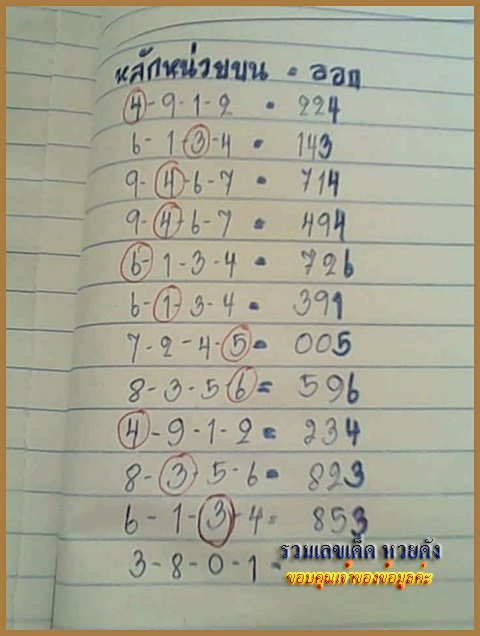 หลักหน่วยบน = ออก
4-9-1-2 = 224
6-1-3-4 = 143
9-4-6-7 = 714
9-4-6-7 = 494
6-1-3-4 = 726
6-1-3-4 = 391
7-2-4-5 = 005
8-3-5-6 = 596
4-9-1-2 = 234
8-3-5-6 = 823
6-1-3-4 = 853
3-8-0-1 =
รวมเลขเด็ด หวยดัง
ขอบคุณเจ้าของข้อมูลค่ะ